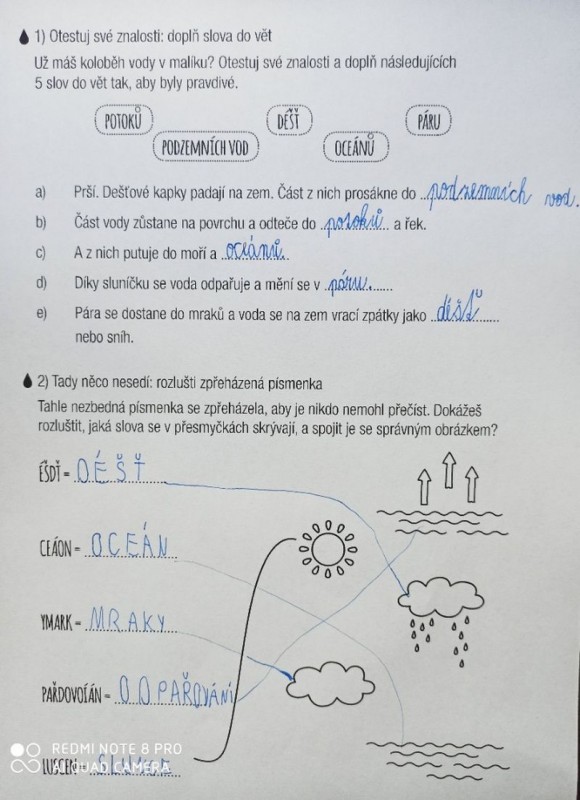 1) Otestuj své znalosti: doplň slova do vět
Už máš koloběh vody v malíku? Otestuj své znalosti a doplň následujících
5 slov do vět tak, aby byly pravdivé.
POTOKŮ DÉŠŤ PÁRU
PODZEMNÍCH VOD OCEÁNŮ
a) Prší. Dešťové kapky padají na zem. Část z nich prosákne do podzemních vod.
b) Část vody zůstane na povrchu a odteče do potoků a řek.
c) A z nich putuje do moří a oceánů.
d) Díky sluníčku se voda odpařuje a mění se v páru.
e) Pára se dostane do mraků a voda se na zem vrací zpátky jako déšť
nebo sníh.
2) Tady něco nesedí: rozlušti zpřeházená písmenka
Tahle nezbedná písmenka se zpřeházela, aby je nikdo nemohl přečíst. Dokážeš
rozluštit, jaká slova se v přesmyčkách skrývají, a spojit je se správným obrázkem?
ÉŠDŤ = DÉŠŤ
CEÁON = OCEÁN
YMARK = MRAKY
PAŘDOVOÍÁN = ODPAŘOVÁNÍ
REDMI NOTE 8 PRO
AI QUAD CAMERA